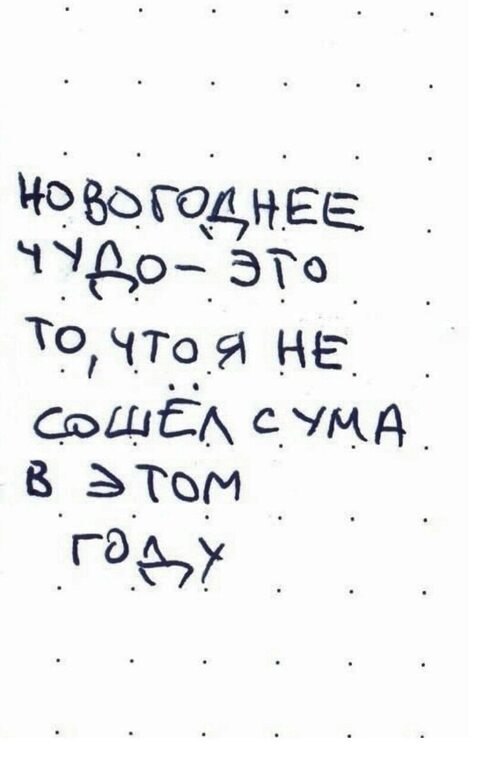 НОВОГОДНЕЕ
ЧУДО – ЭТО
ТО, ЧТО Я НЕ
СОШЁЛ С УМА
В ЭТОМ
ГОДУ